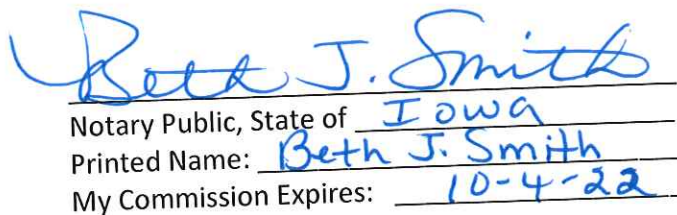 Beth J. Smith
Notary Public, State of Iowa
Printed Name: Beth J. Smith
My Commission Expires: 10-4-22